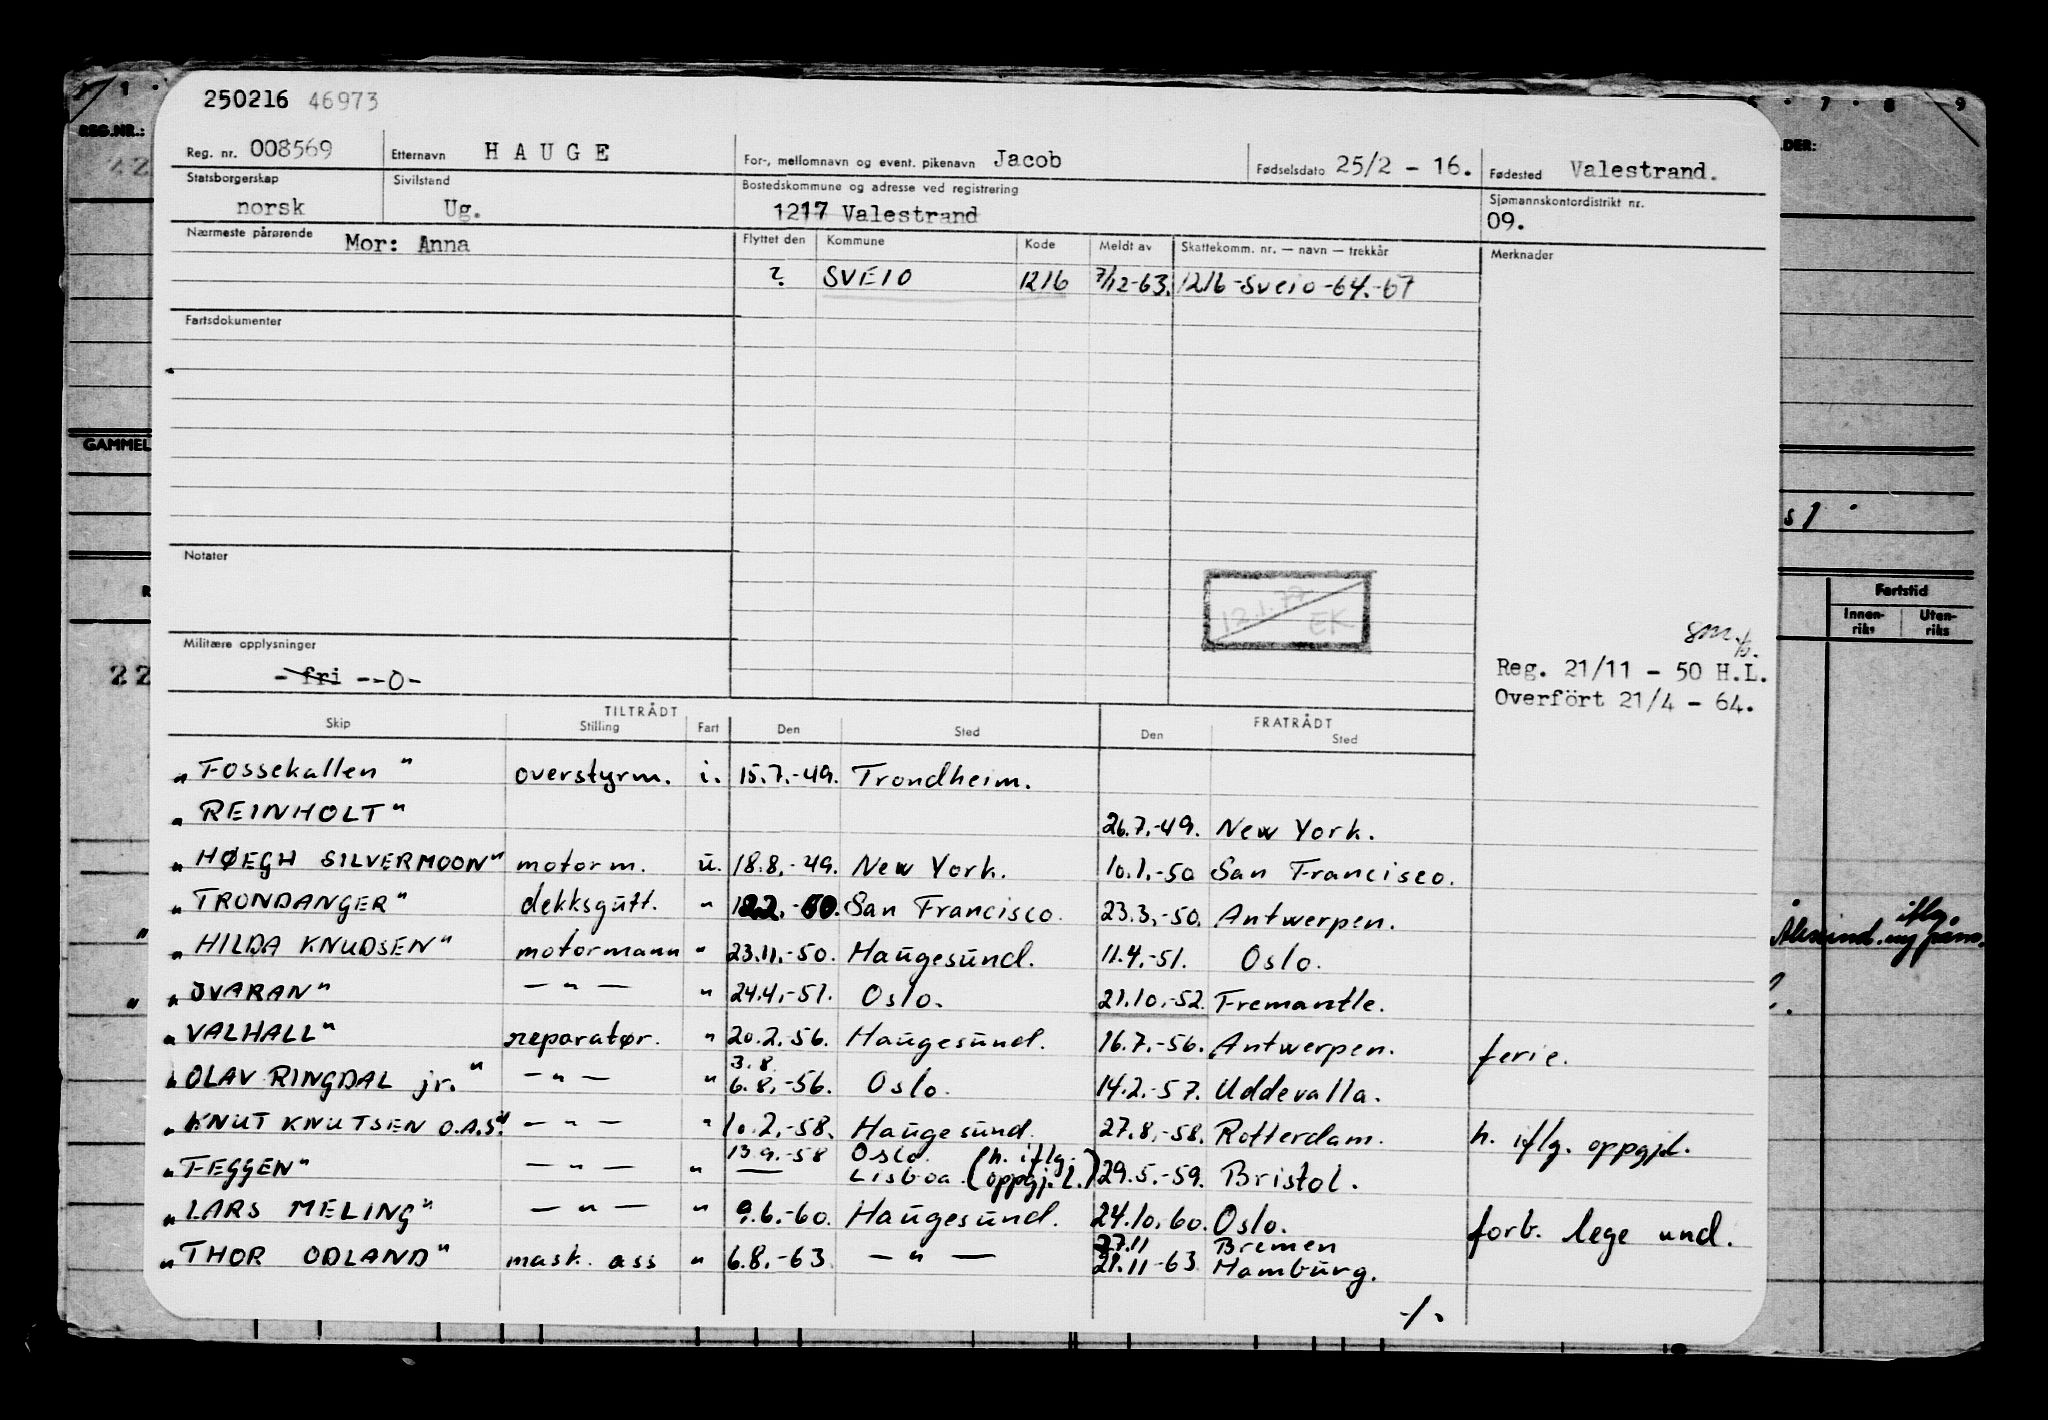 250216 46973
REG.NR.:
Reg. nr. 008569 Etternavn HAUGE For-, mellomnavn og event. pikenavn Jacob Fødselsdato 25/2 - 16. Fødested Valestrand.
Statsborgerskap norsk Sivilstand Ug. Bostedskommune og adresse ved registrering 1217 Valestrand Sjømannskontordistrikt nr. 09.
Nærmeste pårørende Mor: Anna Flyttet den Kommune Kode Meldt av Skattekomm. nr. — navn — trekkår Merknader
? SVEIO 1216 7/12-63. 1216-Sveio-64.-67
Fartsdokumenter
GAMMEL
Notater
12.1.77 EK
Militære opplysninger
- fri --0-
sm.
Reg. 21/11 - 50 H.L.
Overfört 21/4 - 64.
Fartstid
Innen-riks Uten-riks
22
TILTRÅDT FRATRÅDT
Skip Stilling Fart Den Sted Den Sted
„Fossekallen" overstyrm. i. 15.7.-49. Trondheim.
„REINHOLT" 26.7.-49. New York.
„HØEGH SILVERMOON" motorm. u. 18.8.-49. New York. 10.1.-50 San Francisco.
„TRONDANGER" dekksgutt. " San Francisco. 23.3.-50. Antwerpen.
„HILDA KNUDSEN" motormann " 23.11.-50. Haugesund. 11.4.-51. Oslo.
„IVARAN" — " — " 24.4.-51. Oslo. 21.10.-52. Fremantle.
„VALHALL" reparatør. " 20.2.-56. Haugesund. 16.7.-56. Antwerpen. ferie.
3.8.
„OLAV RINGDAL jr." — " — " 6.8.-56. Oslo. 14.2.-57. Uddevalla.
„KNUT KNUTSEN O.A.S." — " — " 10.2.-58. Haugesund. 27.8.-58. Rotterdam. h. iflg. oppgjl.
13.9.-58 Oslo. (h. iflg.
„FEGGEN" — " — " — Lisboa. oppgj.l.) 29.5.-59. Bristol.
„LARS MELING" — " — " 9.6.-60. Haugesund. 24.10.60. Oslo. forb. lege und.
27.11 Bremen
„THOR ODLAND" mask. ass " 6.8.-63. — " — 29.11-63 Hamburg.
-/.